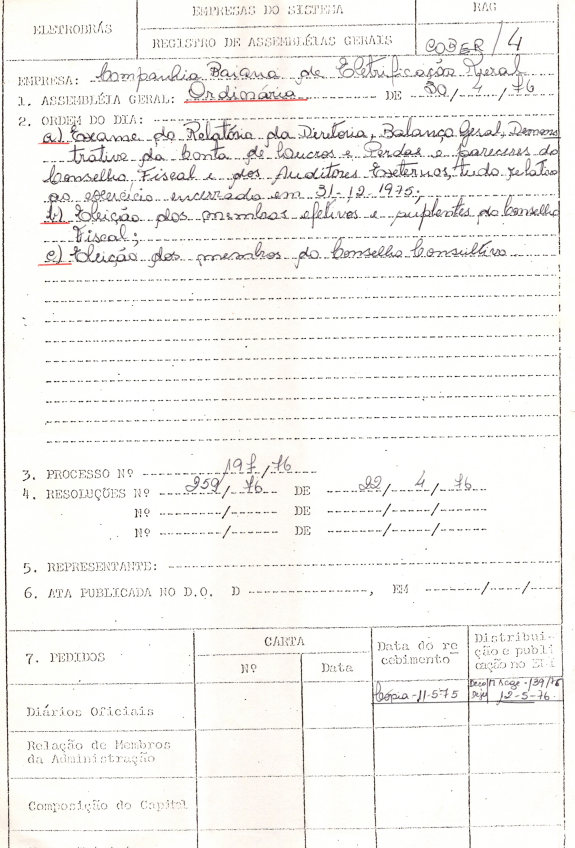 ELETROBRÁS
EMPRESAS DO SISTEMA
RAG
REGISTRO DE ASSEMBLÉIAS GERAIS
COBER/4
EMPRESA: Companhia Baiana de Eletrificação Geral
1. ASSEMBLÉIA GERAL: Ordinária DE 30/4/76
2. ORDEM DO DIA:
a) Exame do Relatório da Diretoria, Balanço Geral, Demons
trativo da Conta de Lucros e Perdas e Pareceres do
Conselho Fiscal e dos Auditores Externos, tudo relativo
ao exercício encerrado em 31-12-1975;
b) Eleição dos membros efetivos e suplentes do Conselho
Fiscal;
c) Eleição dos membros do Conselho Consultivo.
3. PROCESSO Nº 197/76
4. RESOLUÇÕES Nº 259/76 DE 22/4/76
Nº / DE / /
Nº / DE / /
5. REPRESENTANTE:
6. ATA PUBLICADA NO D.O. D , EM / /
7. PEDIDOS
CARTA
Nº
Data
Data do re
cebimento
Distribui-
ção e publi
cação no
Diários Oficiais
Cópia-11-5-75
139/76
12-5-76.
Relação de Membros
da Administração
Composição do Capital